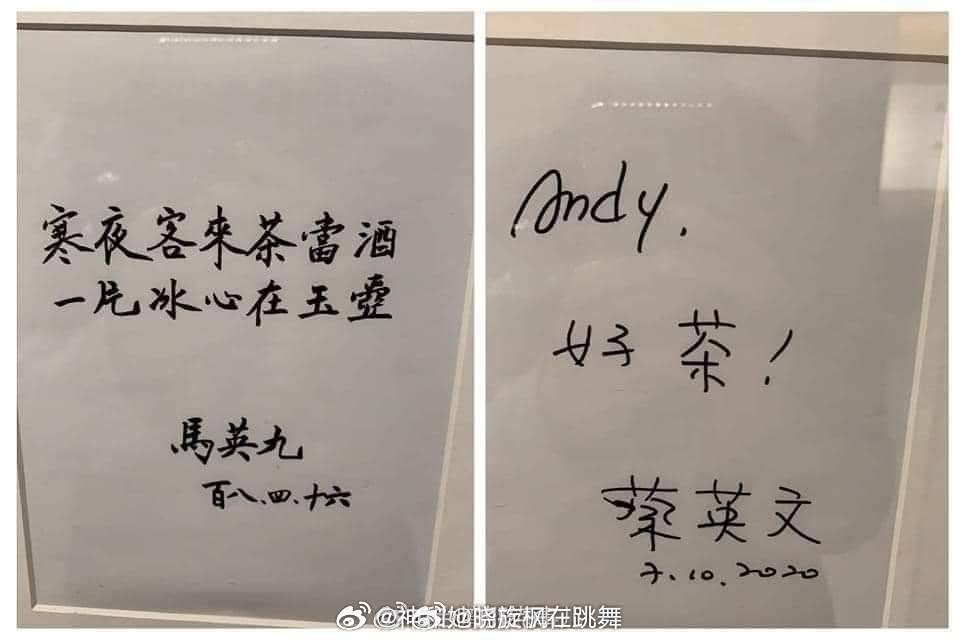 寒夜客來茶當酒
一片冰心在玉壺
馬英九
百八.四.十六
Andy.
好茶!
蔡英文
7.10.2020
@晓旋枫在跳舞